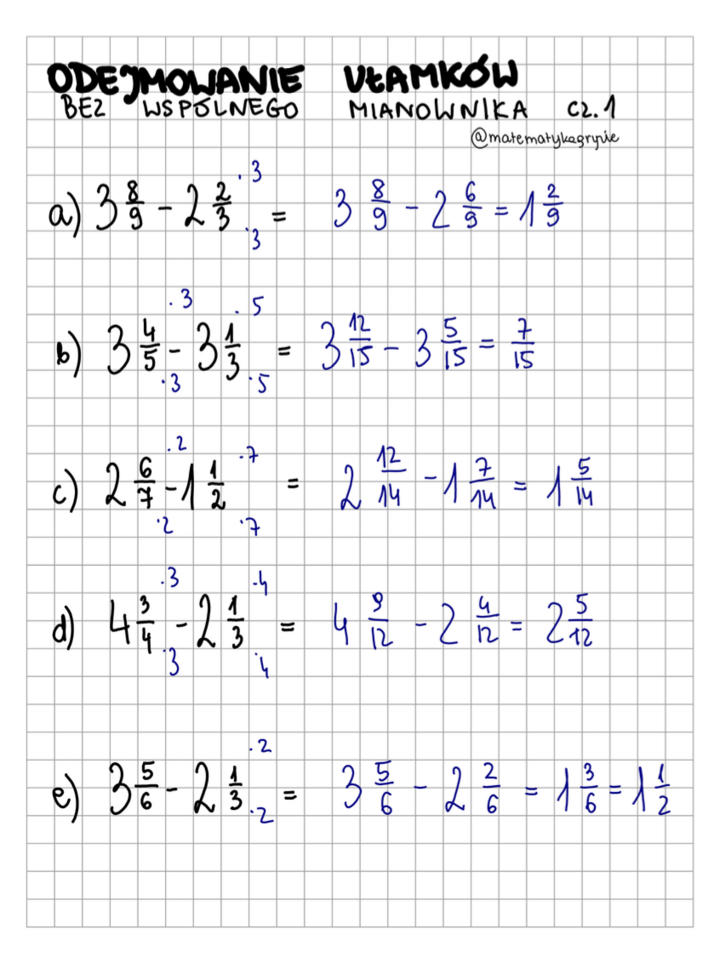 ODEJMOWANIE UŁAMKÓW
BEZ WSPÓLNEGO MIANOWNIKA CZ. 1
@matematykagryzie
a) 3 8/9 - 2 2/3 ·3 ·3 = 3 8/9 - 2 6/9 = 1 2/9
b) 3 4/5 ·3 ·3 - 3 1/3 ·5 ·5 = 3 12/15 - 3 5/15 = 7/15
c) 2 6/7 ·2 ·2 - 1 1/2 ·7 ·7 = 2 12/14 - 1 7/14 = 1 5/14
d) 4 3/4 ·3 ·3 - 2 1/3 ·4 ·4 = 4 9/12 - 2 4/12 = 2 5/12
e) 3 5/6 - 2 1/3 ·2 ·2 = 3 5/6 - 2 2/6 = 1 3/6 = 1 1/2